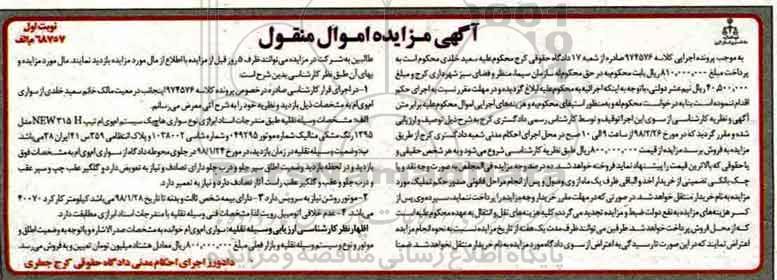 نوبت اول
۶۸۷۵۷ م الف
آگهی مزایده اموال منقول
به موجب پرونده اجرایی کلاسه ۹۷۴۵۷۶ صادره از شعبه ۱۷ دادگاه حقوقی کرج محکوم علیه سعید خلدی محکوم است به
پرداخت مبلغ ۸۱۰,۰۰۰,۰۰۰ ریال بابت محکوم به در حق محکوم له سازمان سیما، منظر و فضای سبز شهرداری کرج و مبلغ
۴۰,۵۰۰,۰۰۰ ریال نیم عشر دولتی، باتوجه به اینکه اجرائیه به محکوم علیه ابلاغ گردیده و در مهلت مقرر نسبت به اجرای حکم
اقدام ننموده است بنا به درخواست محکوم له و به منظور استیفای محکوم به و هزینه های اجرایی اموال محکوم علیه برابر متن
آگهی و نظریه کارشناسی از سوی این اجرا توقیف و توسط کارشناس رسمی دادگستری کرج به شرح ذیل توصیف و ارزیابی
شده و مقرر گردید که در مورخ ۹۸/۲/۲۶ از ساعت ۹ الی ۱۰ صبح در محل اجرای احکام مدنی شعبه دادگستری کرج از طریق
مزایده به فروش برسد مزایده از قیمت ۸۰۰,۰۰۰,۰۰۰ ریال طبق نظریه کارشناسی شروع می شود و به هر شخص حقیقی و
یا حقوقی که بالاترین قیمت را پیشنهاد نماید فروخته خواهد شد. ده درصد وجه مزایده فی المجلس به صورت وجه نقد و یا
چک بانکی تضمینی از خریدار اخذ و الباقی ظرف یک ماه از وی وصول و پس از انجام مراحل قانونی صدور حکم تملیک، مورد
مزایده به نام خریدار منتقل خواهد شد. در صورتی که در مهلت مقرر خریدار وجه مزایده را پرداخت ننماید، سپرده وی پس از
کسر هزینه های مزایده به نفع دولت ضبط و مزایده تجدید می گردد. کلیه هزینه های نقل و انتقال به عهده محکوم علیه است
که از محل فروش پرداخت خواهد شد. طرفین می توانند ظرف مدت یک هفته از تاریخ مزایده نسبت به نحوه انجام مزایده
اعتراض نمایند که در این صورت تا رسیدگی به اعتراض از سوی دادگاه مورد مزایده به نام خریدار منتقل نخواهد شد. ضمناً
طالبین به شرکت در مزایده می توانند ظرف ۵ روز قبل از مزایده با اطلاع از مال مورد مزایده بازدید نمایند. مال مورد مزایده و
بهای آن طبق نظر کارشناسی بدین شرح است:
۱- در اجرای قرار کارشناسی صادره در خصوص پرونده کلاسه ۹۷۴۵۷۶ اینجانب در معیت مالک خانم سعید خلدی از سواری
ام وی ام به مشخصات ذیل بازدید و نظریه خود را به شرح آتی معرض می رسانم.
الف: مشخصات وسیله نقلیه طبق مندرجات اسناد ابرازی نوع سواری هاچ بک سیستم ام وی ام تیپ NEW ۳۱۵ H مدل
۱۳۹۵ رنگ مشکی متالیک شماره موتور ۰۴۹۲۹۵ و شماره شاسی ۱۰۳۸۰۰۲ و پلاک انتظامی ۳۵۹ س ۴۱ ایران ۳۸ می باشد.
ب: وضعیت وسیله نقلیه در زمان بازدید، در مورخ ۹۸/۱/۲۴ در جلوی محوطه دادگاه از سواری ام وی ام به مشخصات فوق
بازدید و در لحظه بازدید وضعیت اطاق سپر جلو و درب جلو دارای تصادف و نیاز به تعویض دارد و گلگیر عقب چپ و سپر عقب
و درب جلو و عقب و گلگیر عقب راست آثار تصادف دارد و نیاز به تعمیر دارد.
۲- موتور روشن نیاز به سرویس دارد ۳- دارای بیمه شخص ثالث و بدنه تا تاریخ ۹۸/۱/۲۸ می باشد کیلومتر کارکرد ۴۰۰۷۰
می باشد ۴- عدم خلافی اتومبیل رویت لذا مشخصات فنی وسیله نقلیه با مندرجات اسناد ابرازی مطابقت دارد.
اظهار نظر کارشناسی ارزیابی وسیله نقلیه: سواری ام وی ام خوانده به مشخصات صدرالاشاره و باتوجه به وضعیت اطاق و
موتور و نوع و سیستم وسیله نقلیه و بازار فعلی مبلغ ۸۰۰,۰۰۰,۰۰۰ ریال معادل هشتاد میلیون تومان تعیین و به فروش می رسد.
دادورز اجرای احکام مدنی دادگاه حقوقی کرج جعفری